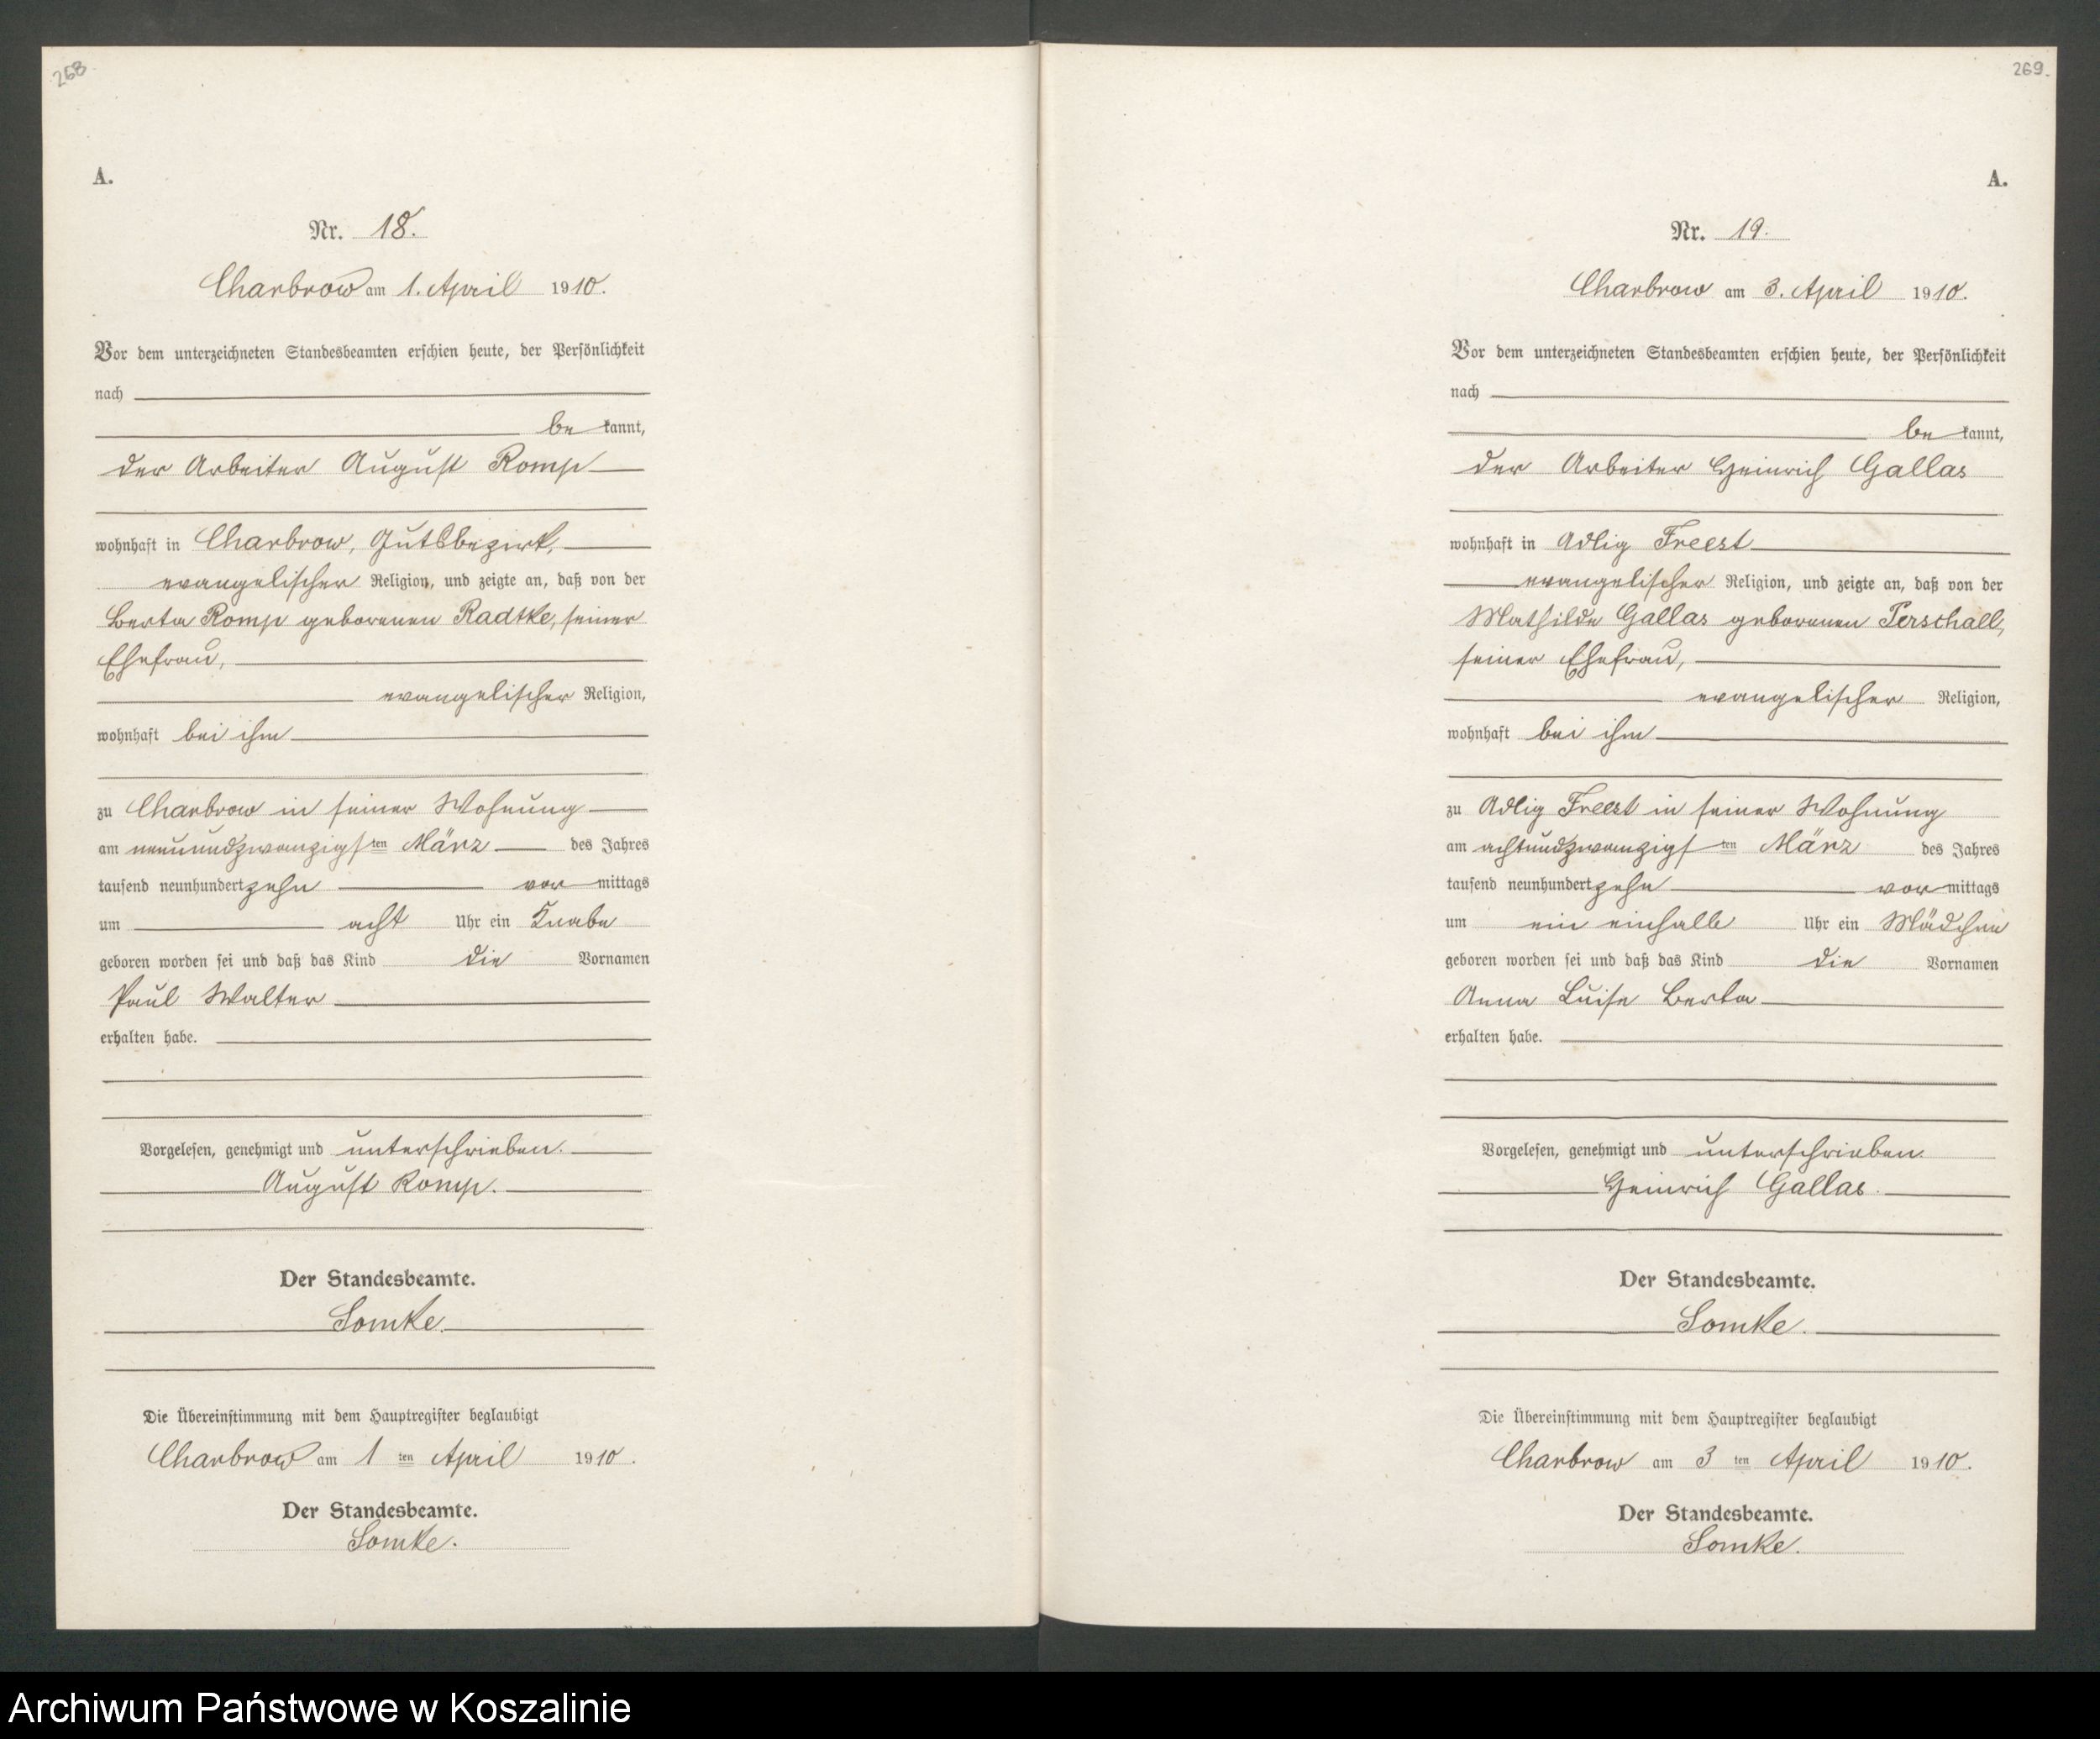 268
A.
Nr. 18.
Charbrow am 1. April 1910.
Vor dem unterzeichneten Standesbeamten erschien heute, der Persönlichkeit
nach
be kannt,
der Arbeiter August Romp
wohnhaft in Charbrow, Gutsbezirk,
evangelischer Religion, und zeigte an, daß von der
Berta Romp geborenen Radtke, seiner
Ehefrau,
evangelischer Religion,
wohnhaft bei ihm
zu Charbrow in seiner Wohnung
am neunundzwanzigsten März des Jahres
tausend neunhundertzehn vormittags
um acht Uhr ein Knabe
geboren worden sei und daß das Kind die Vornamen
Paul Walter
erhalten habe.
Vorgelesen, genehmigt und unterschrieben.
August Romp.
Der Standesbeamte.
Somke.
Die Übereinstimmung mit dem Hauptregister beglaubigt
Charbrow am 1 ten April 1910.
Der Standesbeamte.
Somke.
269.
A.
Nr. 19.
Charbrow am 3. April 1910.
Vor dem unterzeichneten Standesbeamten erschien heute, der Persönlichkeit
nach
be kannt,
der Arbeiter Heinrich Gallas
wohnhaft in Adlig Freest
evangelischer Religion, und zeigte an, daß von der
Mathilde Gallas geborenen Perschall,
seiner Ehefrau,
evangelischer Religion,
wohnhaft bei ihm
zu Adlig Freest in seiner Wohnung
am achtundzwanzigsten März des Jahres
tausend neunhundertzehn vormittags
um ein einhalb Uhr ein Mädchen
geboren worden sei und daß das Kind die Vornamen
Anna Luise Berta
erhalten habe.
Vorgelesen, genehmigt und unterschrieben.
Heinrich Gallas.
Der Standesbeamte.
Somke.
Die Übereinstimmung mit dem Hauptregister beglaubigt
Charbrow am 3 ten April 1910.
Der Standesbeamte.
Somke.
Archiwum Państwowe w Koszalinie